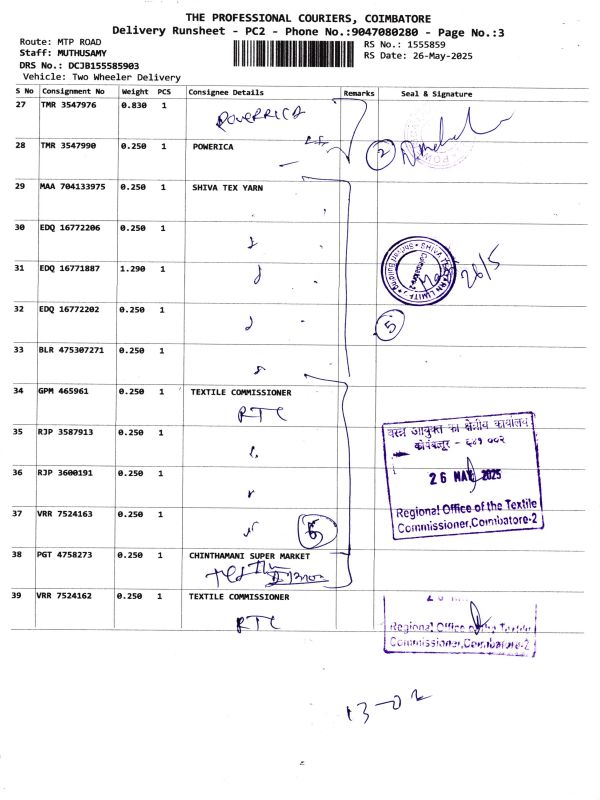 THE PROFESSIONAL COURIERS, COIMBATORE
Delivery Runsheet - PC2 - Phone No.:9047080280 - Page No.:3
Route: MTP ROAD
Staff: MUTHUSAMY
DRS No.: DCJB155585903
Vehicle: Two Wheeler Delivery
RS No.: 1555859
RS Date: 26-May-2025
S No Consignment No Weight PCS Consignee Details Remarks Seal & Signature
27 TMR 3547976 0.830 1
POWERRICA
28 TMR 3547990 0.250 1 POWERICA
2
29 MAA 704133975 0.250 1 SHIVA TEX YARN
30 EDQ 16772206 0.250 1
31 EDQ 16771887 1.290 1
26/5
32 EDQ 16772202 0.250 1
5
33 BLR 475307271 0.250 1
34 GPM 465961 0.250 1 TEXTILE COMMISSIONER
RTC
35 RJP 3587913 0.250 1
वस्त्र आयुक्त का क्षेत्रीय कार्यालय
कोयंबत्तूर - ६४१ ००२
36 RJP 3600191 0.250 1
26 MAY 2025
37 VRR 7524163 0.250 1
6
Regional Office of the Textile
Commissioner, Coimbatore-2
38 PGT 4758273 0.250 1 CHINTHAMANI SUPER MARKET
39 VRR 7524162 0.250 1 TEXTILE COMMISSIONER
RTC
Regional Office of the Textile
Commissioner, Coimbatore-2
13-02